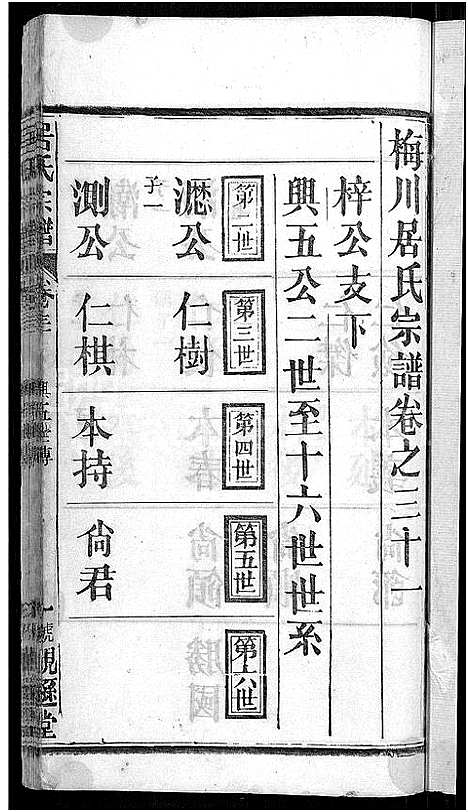 梅川居氏宗譜卷之三十一
梓公支下
興五公二世至十六世世系
第二世 第三世 第四世 第五世 第六世
濍公 仁樹
子一
測公 仁棋 本持 尙君
居氏宗譜 卷三 興五世傳 一 號 堂